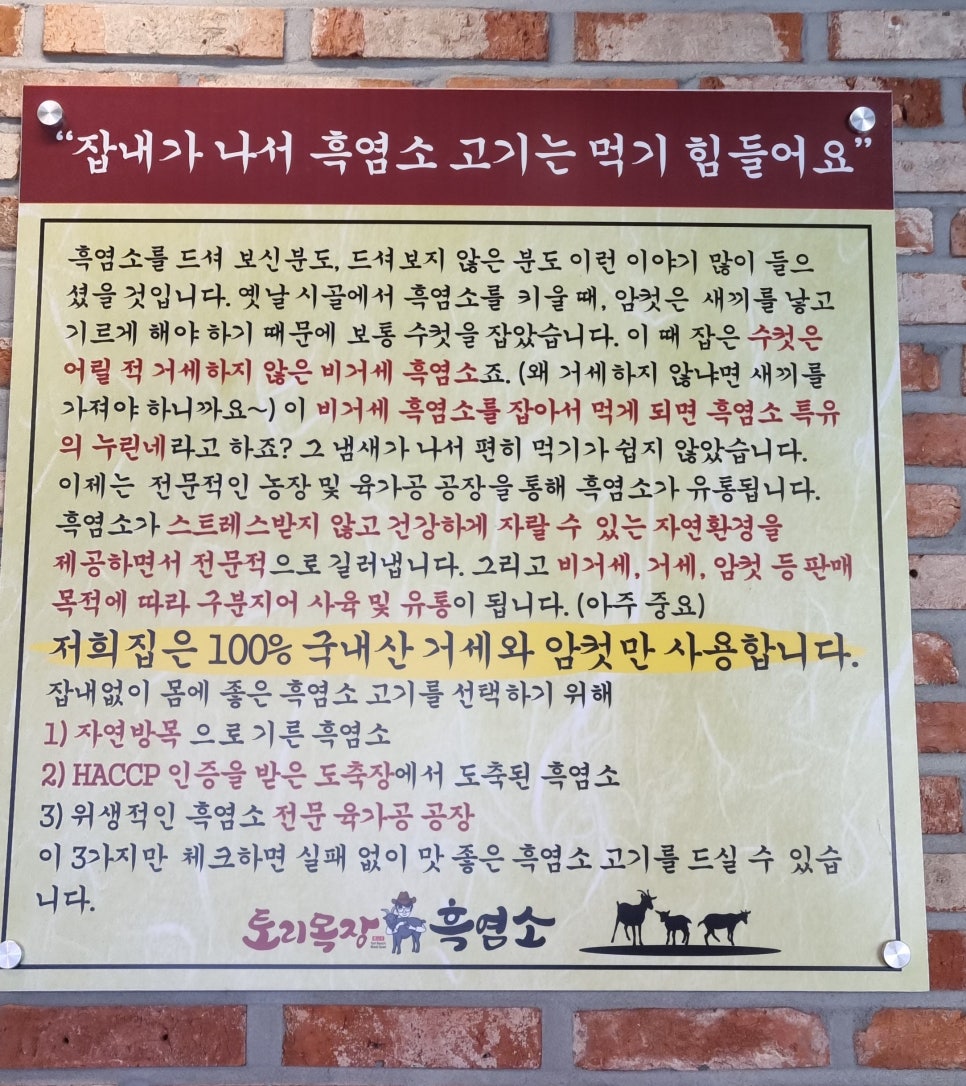 “잡내가 나서 흑염소 고기는 먹기 힘들어요”
흑염소를 드셔 보신분도, 드셔보지 않은 분도 이런 이야기 많이 들으
셨을 것입니다. 옛날 시골에서 흑염소를 키울 때, 암컷은 새끼를 낳고
기르게 해야 하기 때문에 보통 수컷을 잡았습니다. 이 때 잡은 수컷은
어릴 적 거세하지 않은 비거세 흑염소죠. (왜 거세하지 않냐면 새끼를
가져야 하니까요~) 이 비거세 흑염소를 잡아서 먹게 되면 흑염소 특유
의 누린네라고 하죠? 그 냄새가 나서 편히 먹기가 쉽지 않았습니다.
이제는 전문적인 농장 및 육가공 공장을 통해 흑염소가 유통됩니다.
흑염소가 스트레스받지 않고 건강하게 자랄 수 있는 자연환경을
제공하면서 전문적으로 길러냅니다. 그리고 비거세, 거세, 암컷 등 판매
목적에 따라 구분지어 사육 및 유통이 됩니다. (아주 중요)
저희집은 100% 국내산 거세와 암컷만 사용합니다.
잡내없이 몸에 좋은 흑염소 고기를 선택하기 위해
1) 자연방목 으로 기른 흑염소
2) HACCP 인증을 받은 도축장에서 도축된 흑염소
3) 위생적인 흑염소 전문 육가공 공장
이 3가지만 체크하면 실패 없이 맛 좋은 흑염소 고기를 드실 수 있습
니다.
토리목장 흑염소